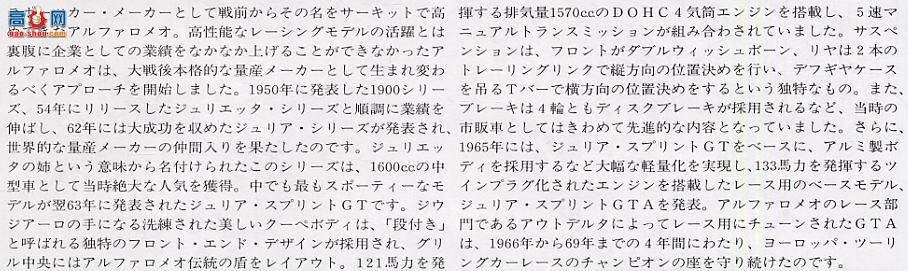 カー・メーカーとして戦前からその名をサーキットで高
アルファロメオ。高性能なレーシングモデルの活躍とは
裏腹に企業としての業績をなかなか上げることができなかったア
ルファロメオは、大戦後本格的な量産メーカーとして生まれ変わ
るべくアプローチを開始しました。1950年に発表した1900シリー
ズ、54年にリリースしたジュリエッタ・シリーズと順調に業績を
伸ばし、62年には大成功を収めたジュリア・シリーズが発表され、
世界的な量産メーカーの仲間入りを果たしたのです。ジュリエッ
タの姉という意味から名付けられたこのシリーズは、1600ccの中
型車として当時絶大な人気を獲得。中でも最もスポーティーなモ
デルが翌63年に発表されたジュリア・スプリントGTです。ジウ
ジアーロの手になる洗練された美しいクーペボディは、「段付き」
と呼ばれる独特のフロント・エンド・デザインが採用され、グリ
ル中央にはアルファロメオ伝統の盾をレイアウト。121馬力を発
揮する排気量1570ccのDOHC4気筒エンジンを搭載し、5速マ
ニュアルトランスミッションが組み合わされていました。サスペ
ンションは、フロントがダブルウィッシュボーン、リヤは2本の
トレーリングリンクで縦方向の位置決めを行い、デフギヤケース
を吊るTバーで横方向の位置決めをするという独特なもの。また、
ブレーキは4輪ともディスクブレーキが採用されるなど、当時の
市販車としてはきわめて先進的な内容となっていました。さらに、
1965年には、ジュリア・スプリントGTをベースに、アルミ製ボ
ディを採用するなど大幅な軽量化を実現し、133馬力を発揮するツ
インプラグ化されたエンジンを搭載したレース用のベースモデル、
ジュリア・スプリントGTAを発表。アルファロメオのレース部
門であるアウトデルタによってレース用にチューンされたGTA
は、1966年から69年までの4年間にわたり、ヨーロッパ・ツーリ
ングカーレースのチャンピオンの座を守り続けたのです。
高车网
gao-shou.com